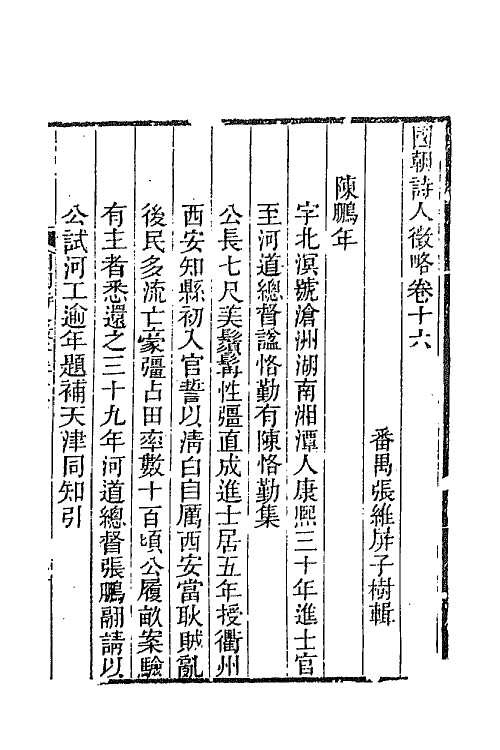 國朝詩人徵略卷十六
番禺張維屏子樹輯
陳鵬年
字北溟號滄洲湖南湘潭人康熙三十年進士官
至河道總督諡恪勤有陳恪勤集
公長七尺美鬚髯性彊直成進士居五年授衢州
西安知縣初入官誓以淸白自厲西安當耿賊亂
後民多流亡豪彊占田率數十百頃公履畝案驗
有主者悉還之三十九年河道總督張鵬翮請以
公試河工逾年題補天津同知引